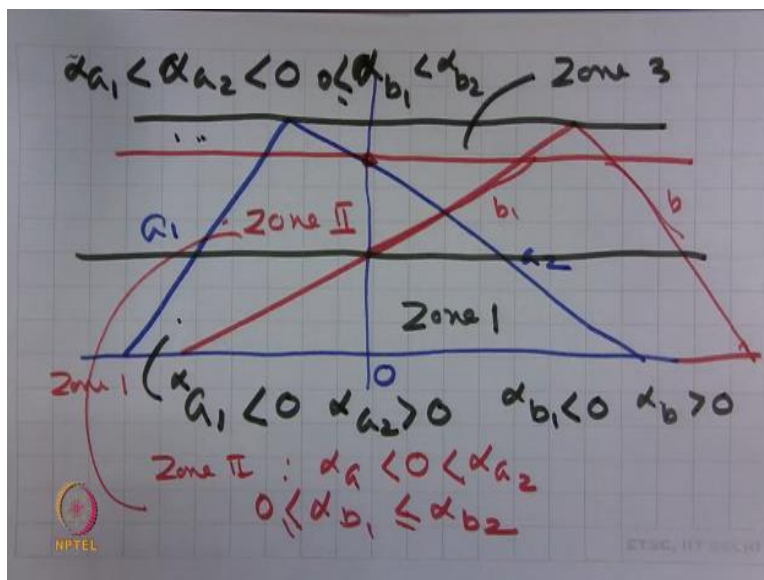 αa₁ < αa₂ < 0 0 ≤ αb₁ < αb₂ Zone 3
a₁ Zone II b₁ b
a₂
Zone 1
0
Zone 1 αa₁ < 0 αa₂ > 0 αb₁ < 0 αb > 0
Zone II : αa < 0 < αa₂
0 ≤ αb₁ ≤ αb₂
NPTEL
ETSC, IIT DELHI